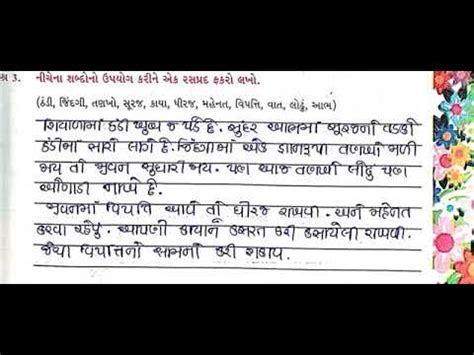 પ્ર 3. નીચેના શબ્દોનો ઉપયોગ કરીને એક રસપ્રદ ફકરો લખો.
(ઠંડી, જિંદગી, તણખો, સૂરજ, કાયા, ધીરજ, મહેનત, વિપત્તિ, વાત, લોઢું, આભ)
શિયાળામાં ઠંડી ખુબ જ પડે છે. સુંદર આભમાં સૂરજના તડકો
ઠંડીમાં સારો લાગે છે. જિંદગીમાં એક જ્ઞાનરૂપી તણખો મળી
જાય તો જીવન સુધારી જાય. પણ આજ તણખો લોઢું પણ
ઓગાળી નાખે છે.
જીવનમાં વિપત્તિ આવે તો ધીરજ રાખવી. અને મહેનત
કરવા રહેવું. આપણી કાયાને કસરત કરી કસાયેલી રાખવી.
જેથી વિપત્તિનો સામનો કરી શકાય.